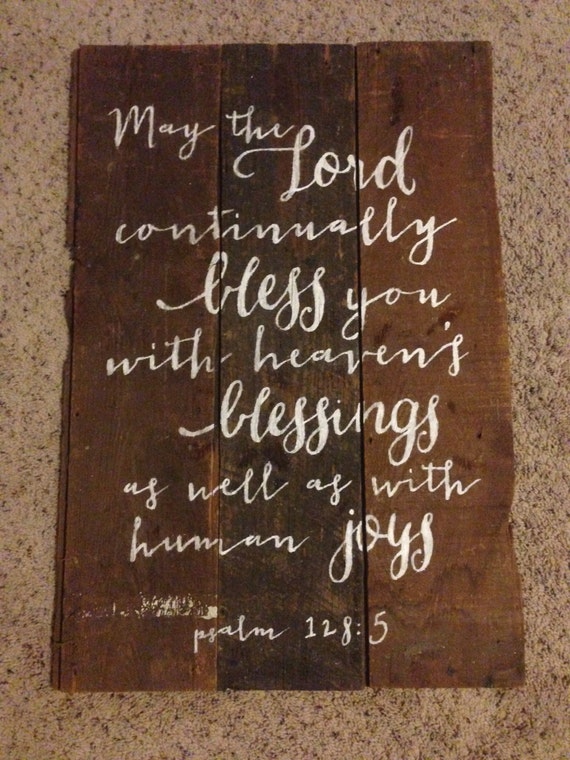 May the
Lord
continually
bless you
with heaven's
blessings
as well as with
human joys
psalm 128:5